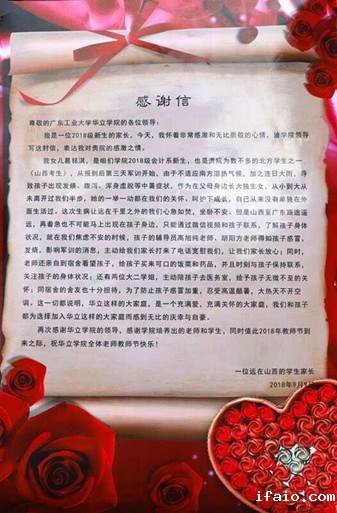 感谢信
尊敬的广东工业大学华立学院的各位领导：
我是一位2018级新生的家长，今天，我怀着非常感激和无比崇敬的心情，迪学院领导
写这封信，表达我对贵院的感激之情。
我女儿葛铥淇，是咱们学院2018级会计系新生，也是贵院为数不多的北方学生之一
《山西考生》，从报到后第三天军训开始，由于不适应南方湿热气候，加之连日大雨，导
致孩子出现发烧、腹泻、浑身虚脱等中暑症状，作为在父母身边长大独生女，从小到大从
未离开过我们半步，她的一举一动都在我们的关怀、呵护下成长，自己从来没有单独在外
面生活过。这次生病让远在千里之外的我们心急如焚，坐卧不安，但是山西至广东路途遥
远，再着急也不可能马上出现在孩子身边，只能通过微信视频和孩子联系，了解孩子身体
状况，就在我们焦虑不安的时候，孩子的辅导员高旭纯老师、胡阳方老师得知孩子感冒
发烧，影响军训的消息，主动给我们家长打来了电话宽慰我们，让我们家长放心；同时，
老师还亲自到宿舍看望孩子，给孩子买来可口的饭菜和药品，并且时刻与孩子保持联系，
关注孩子的身体状况；还有两位大二学姐，主动陪孩子去医务室，给予孩子无微不至的关
怀；同宿舍的舍友也十分担待，为了防止孩子感冒加重，忍受高温酷暑，大热天不开空
调，这一切都说明，华立这样的大家庭，是一个充满爱，充满关怀的大家庭，我们和孩子
都为选择加入华立这样的大家庭而感到无比的庆幸与自豪。
再次感谢华立学院的领导，感谢学院培养出的老师和学生，同时值此2018年教师节到
来之际，祝华立学院全体老师教师节快乐！
一位远在山西的学生家长
2018年9月9日
ifaio.com